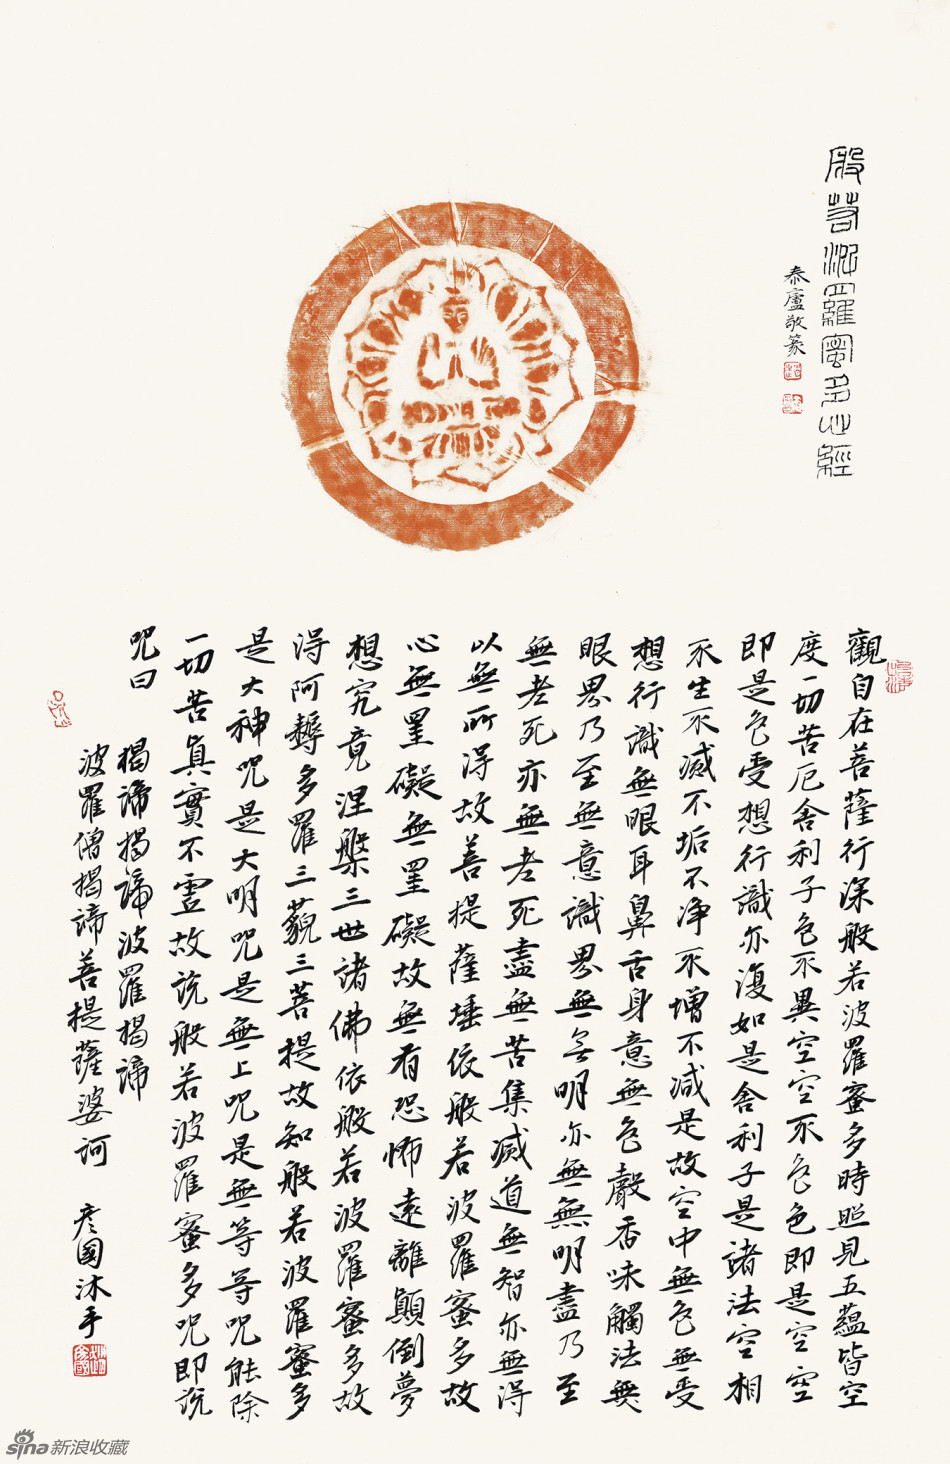 般若波羅蜜多心經
泰廬敬篆
觀自在菩薩行深般若波羅蜜多時照見五蘊皆空
度一切苦厄舍利子色不異空空不色色即是空空
即是色受想行識亦復如是舍利子是諸法空相
不生不滅不垢不净不增不減是故空中無色無受
想行識無眼耳鼻舌身意無色聲香味觸法無
眼界乃至無意識界無無明亦無無明盡乃至
無老死亦無老死盡無苦集滅道無智亦無得
以無所得故菩提薩埵依般若波羅蜜多故
心無罣礙無罣礙故無有恐怖遠離顛倒夢
想究竟涅槃三世諸佛依般若波羅蜜多故
得阿耨多羅三藐三菩提故知般若波羅蜜多
是大神咒是大明咒是無上咒是無等等咒能除
一切苦真實不虛故說般若波羅蜜多咒即說
咒曰 揭諦揭諦波羅揭諦
波羅僧揭諦菩提薩婆訶 彦國沐手
sina新浪收藏